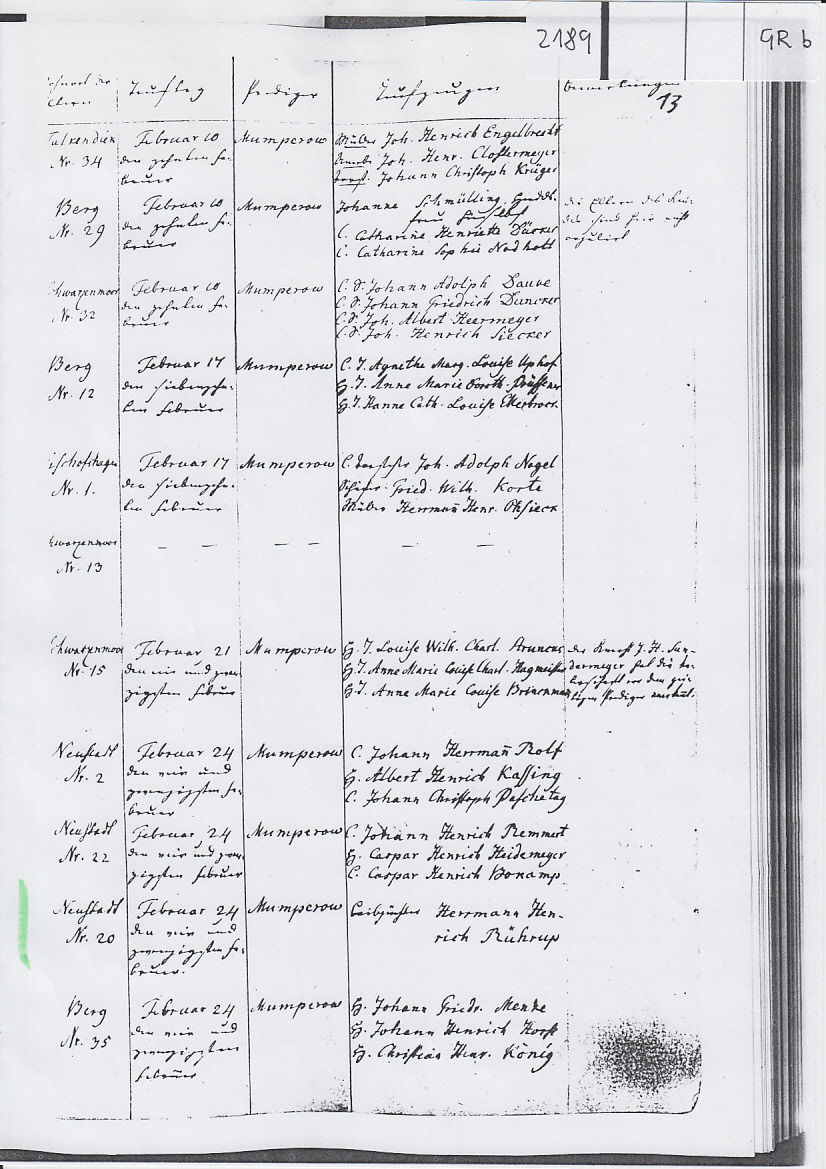 2189 GR b
Tauftag Prediger Taufzeugen Bemerkungen
13
Falkendiek Februar 10 Mumperow Müller Joh. Henrich Engelbrecht
Nr. 34 den zehnten Fe- Joh. Henr. Clostermeyer
bruar Johann Christoph Krüger
Berg Februar 10 Mumperow Johanne Schmülling
Nr. 29 den zehnten Fe-
bruar C. Catharine Henriette Dücker
C. Catharine Sophie Nodhott
die Eltern des Kin-
des sind hier nicht
copuliert
Schwarzenmoor Februar 10 Mumperow C. S. Johann Adolph Dauve
Nr. 32 den zehnten Fe- C. S. Johann Friedrich Duncker
bruar C. S. Joh. Albert Heermeyer
C. S. Joh. Henrich Siecker
Berg Februar 17 Mumperow C. T. Agnethe Marg. Louise Uphof
Nr. 12 den siebenzehn- H. T. Anne Marie Doroth.
ten Februar H. T. Hanne Cath. Louise
Bischofshagen Februar 17 Mumperow C. Joh. Adolph Nagel
Nr. 1. den siebenzehn- Fried. Wilh. Korte
ten Februar Müller Herrmann Henr.
Schwarzenmoor — — — — — —
Nr. 13
Schwarzenmoor Februar 21 Mumperow H. T. Louise Wilh. Charl.
Nr. 15 den ein und zwan- H. T. Anne Marie Louise Charl. Hagmeister
zigsten Februar H. T. Anne Marie Louise Brinkmann
der Knecht J. H. Sun-
dermeyer hat die Va-
terschaft vor dem hie-
sigen Prediger
Neustadt Februar 24 Mumperow C. Johann Herrmann Rolf
Nr. 2 den vier und H. Albert Henrich Kassing
zwanzigsten Fe- C. Johann Christoph Paschetag
bruar
Neustadt Februar 24 Mumperow C. Johann Henrich Remmert
Nr. 22 den vier und zwan- H. Caspar Henrich Heidemeyer
zigsten Februar C. Caspar Henrich Bonamp
Neustadt Februar 24 Mumperow Leibzüchter Herrmann Hen-
Nr. 20 den vier und rich Rührup
zwanzigsten Fe-
bruar.
Berg Februar 24 Mumperow H. Johann Friedr. Menke
Nr. 35 den vier und H. Johann Henrich Horst
zwanzigsten H. Christian Henr. König
Februar